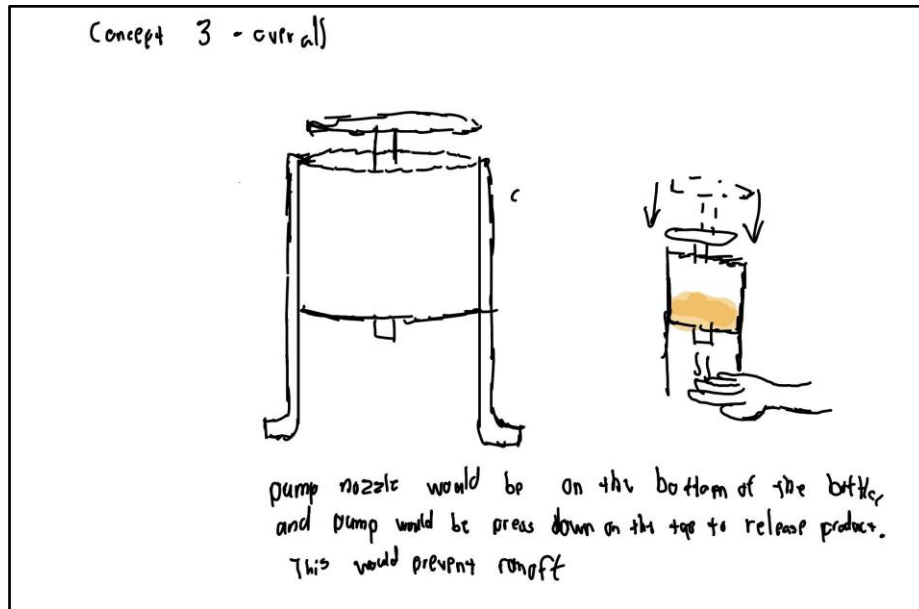 Concept 3 - overall
C
pump nozzle would be on the bottom of the bottle,
and pump would be press down on the top to release product.
This would prevent runoff